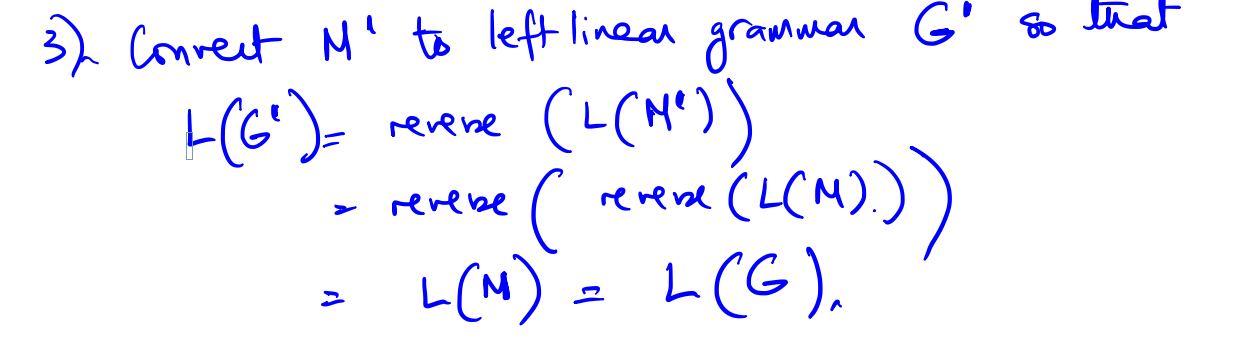 3) Convert M' to left linear grammar G' so that
L(G') = reverse (L(M'))
= reverse ( reverse (L(M)))
= L(M) = L(G).